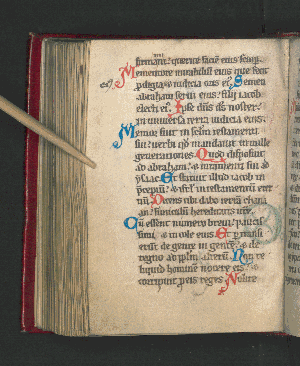 firmami querite faciē eius semp.
Mementote mirabiliū eius que fecit
pdigia eius & iudicia oris ei. Semen
abraham serui eius. filij iacob
electi ei. Ipse dn̄s ds̄ noster.
in uniuersa terra iudicia eius.
Memor fuit in sc̄lm testamenti
sui. uerbi qd̄ mandauit in mille
generationes. Quod disposuit
ad abraham. & iuramenti sui ad
ysaac. Et statuit illud iacob in
preceptū. & isrl̄ in testamentū eter
nū. Dicens tibi dabo terrā chana
an. funiculum hereditatis ure.
Cū essent numero breui. paucis
simi & incole eius. Et ptransi
erūt de gente in gentē. & de
regno ad pplm̄ alterū. Non re
liquid hominē nocere eis. &
corripuit p eis reges. Nolite